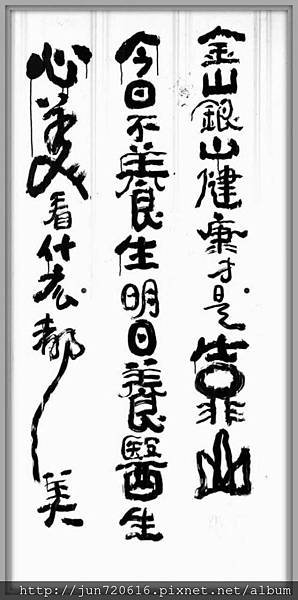 金山銀山健康才是靠山
今日不養生明日養醫生
心美看什么都美
http://jun720616.pixnet.net/album